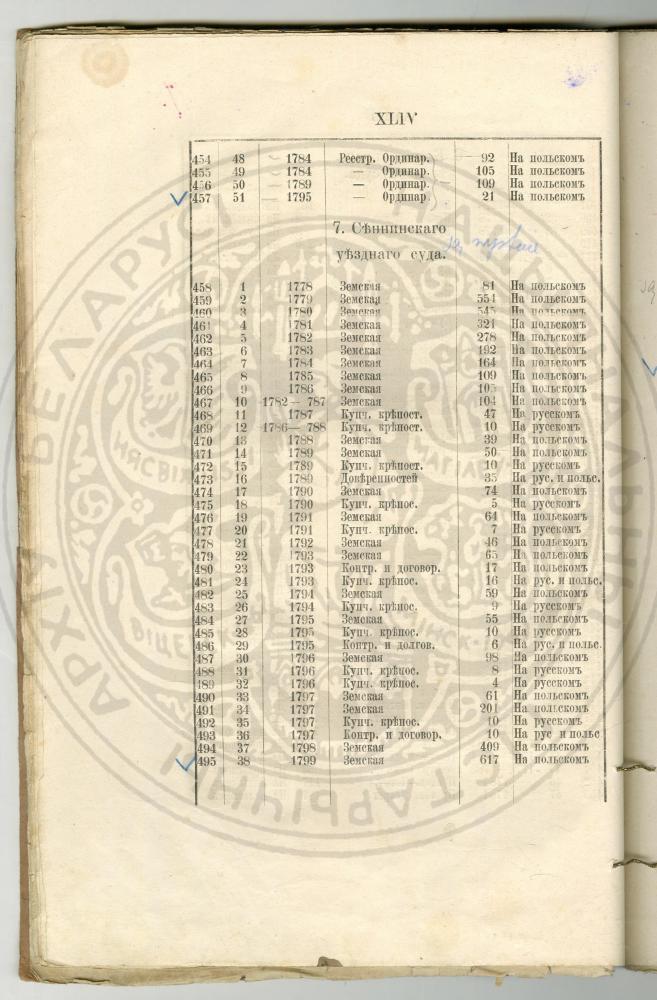 XLIV
454 48 1784 Реестр. Ординар. 92 На польскомъ
455 49 1784 — Ординар. 105 На польскомъ
456 50 1789 — Ординар. 109 На польскомъ
457 51 1795 — Ординар. 21 На польскомъ
7. Сѣннинскаго
уѣзднаго суда.
458 1 1778 Земская 81 На польскомъ
459 2 1779 Земская 554 На польскомъ
460 3 1780 Земская 545 На польскомъ
461 4 1781 Земская 321 На польскомъ
462 5 1782 Земская 278 На польскомъ
463 6 1783 Земская 192 На польскомъ
464 7 1784 Земская 164 На польскомъ
465 8 1785 Земская 109 На польскомъ
466 9 1786 Земская 105 На польскомъ
467 10 1782— 787 Земская 104 На польскомъ
468 11 1787 Купч. крѣпост. 47 На русскомъ
469 12 1786— 788 Купч. крѣпост. 10 На русскомъ
470 13 1788 Земская 39 На польскомъ
471 14 1789 Земская 50 На польскомъ
472 15 1789 Купч. крѣпост. 10 На русскомъ
473 16 1789 Довѣренностей 35 На рус. и польс.
474 17 1790 Земская 74 На польскомъ
475 18 1790 Купч. крѣпос. 5 На русскомъ
476 19 1791 Земская 64 На польскомъ
477 20 1791 Купч. крѣпос. 7 На русскомъ
478 21 1792 Земская 46 На польскомъ
479 22 1793 Земская 65 На польскомъ
480 23 1793 Контр. и договор. 17 На польскомъ
481 24 1793 Купч. крѣпос. 16 На рус. и польс.
482 25 1794 Земская 59 На польскомъ
483 26 1794 Купч. крѣпос. 9 На русскомъ
484 27 1795 Земская 55 На польскомъ
485 28 1795 Купч. крѣпос. 10 На русскомъ
486 29 1795 Контр. и долгов. 6 На рус. и польс.
487 30 1796 Земская 98 На польскомъ
488 31 1796 Купч. крѣпос. 8 На русскомъ
489 32 1796 Купч. крѣпос. 4 На русскомъ
490 33 1797 Земская 61 На польскомъ
491 34 1797 Земская 201 На польскомъ
492 35 1797 Купч. крѣпос. 10 На русскомъ
493 36 1797 Контр. и договор. 10 На рус и польс
494 37 1798 Земская 409 На польскомъ
495 38 1799 Земская 617 На польскомъ